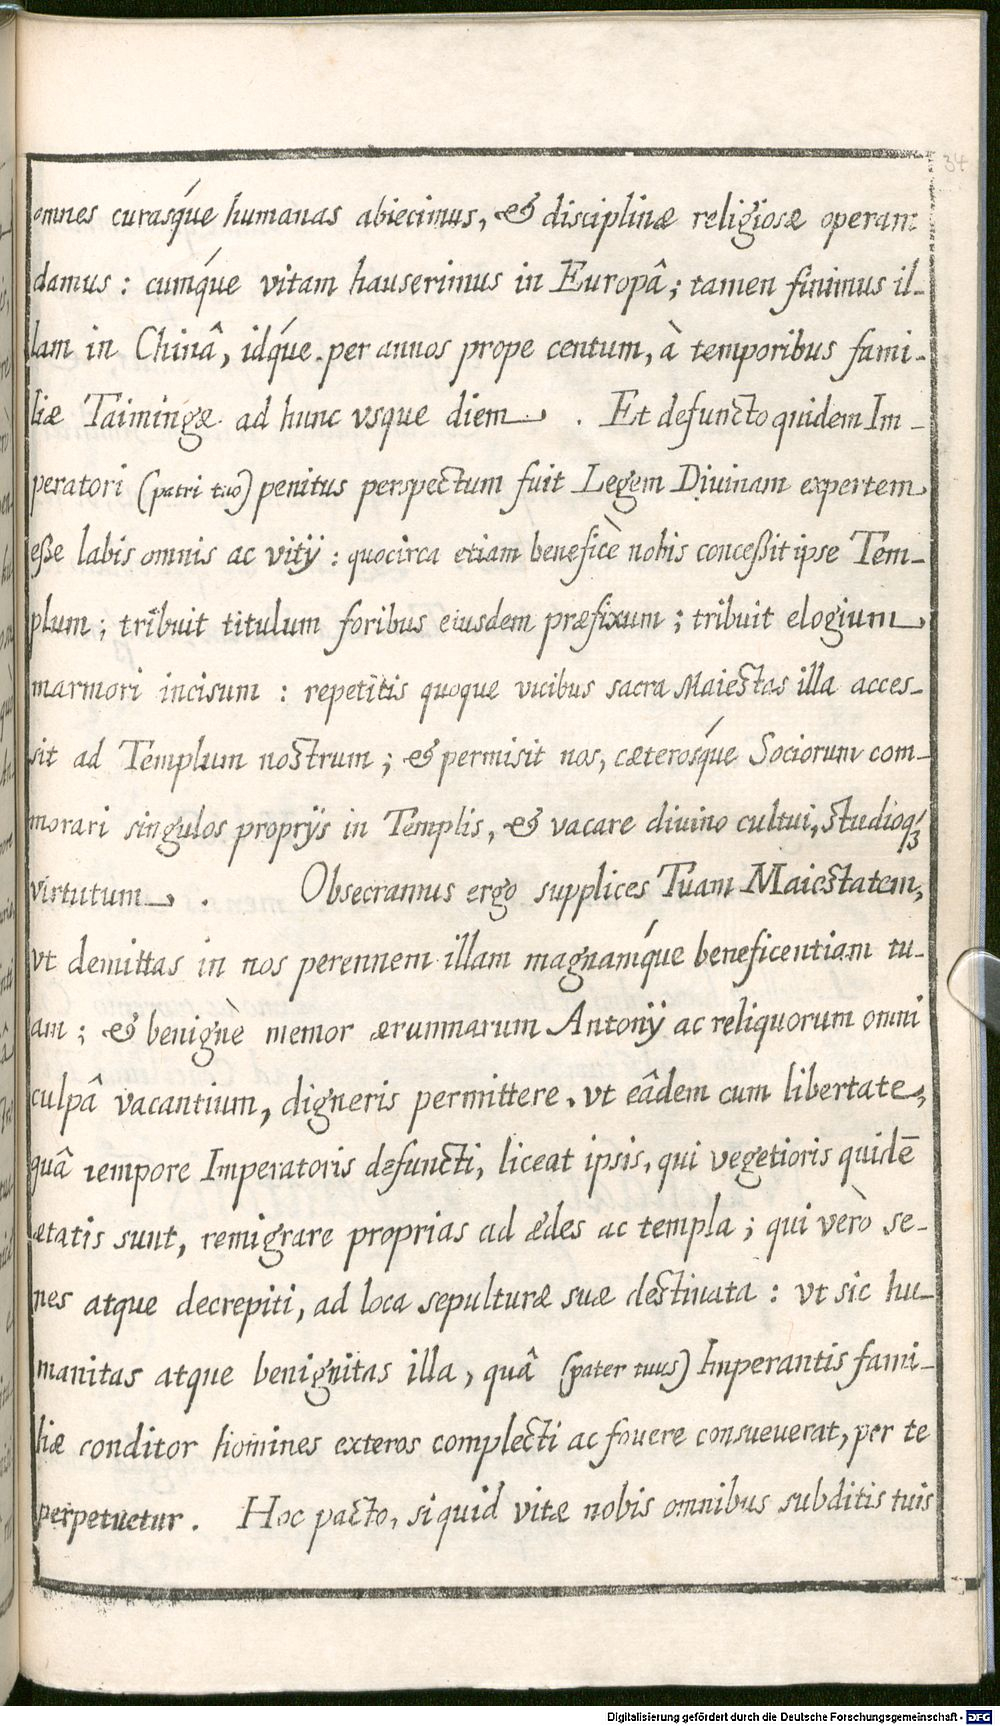 34
omnes curasq́ue humanas abiecimus, & disciplinæ religiosæ operam
damus : cumq́ue vitam hauserimus in Europâ; tamen finimus il-
lam in Chinâ, idq́ue per annos prope centum, à temporibus fami-
liæ Taimingæ ad hunc vsque diem . Et defuncto quidem Im-
peratori (patri tuo) penitus perspectum fuit Legem Diuinam expertem
eße labis omnis ac vitij : quocirca etiam beneficè nobis conceßit ipse Tem-
plum ; tribuit titulum foribus eiusdem præfixum ; tribuit elogium
marmori incisum : repetitis quoque vicibus sacra Maiestas illa acces-
sit ad Templum nostrum ; & permisit nos, cæterosq́ue Sociorum com-
morari singulos proprijs in Templis, & vacare diuino cultui, studioq́ꝫ
virtutum . Obsecramus ergo supplices Tuam Maiestatem,
vt demittas in nos perennem illam magnamq́ue beneficentiam tu-
am ; & benignè memor ærumnarum Antonij ac reliquorum omni
culpâ vacantium, digneris permittere, vt eâdem cum libertate,
quâ tempore Imperatoris defuncti, liceat ipsis, qui vegetioris quidē
ætatis sunt, remigrare proprias ad ædes ac templa ; qui verò se-
nes atque decrepiti, ad loca sepulturæ suæ destinata : vt sic hu-
manitas atque benignitas illa, quâ (pater tuus) Imperantis fami-
liæ conditor homines exteros complecti ac fouere consueuerat, per te
perpetuetur . Hoc pacto, si quid vitæ nobis omnibus subditis tuis
Digitalisierung gefördert durch die Deutsche Forschungsgemeinschaft - DFG